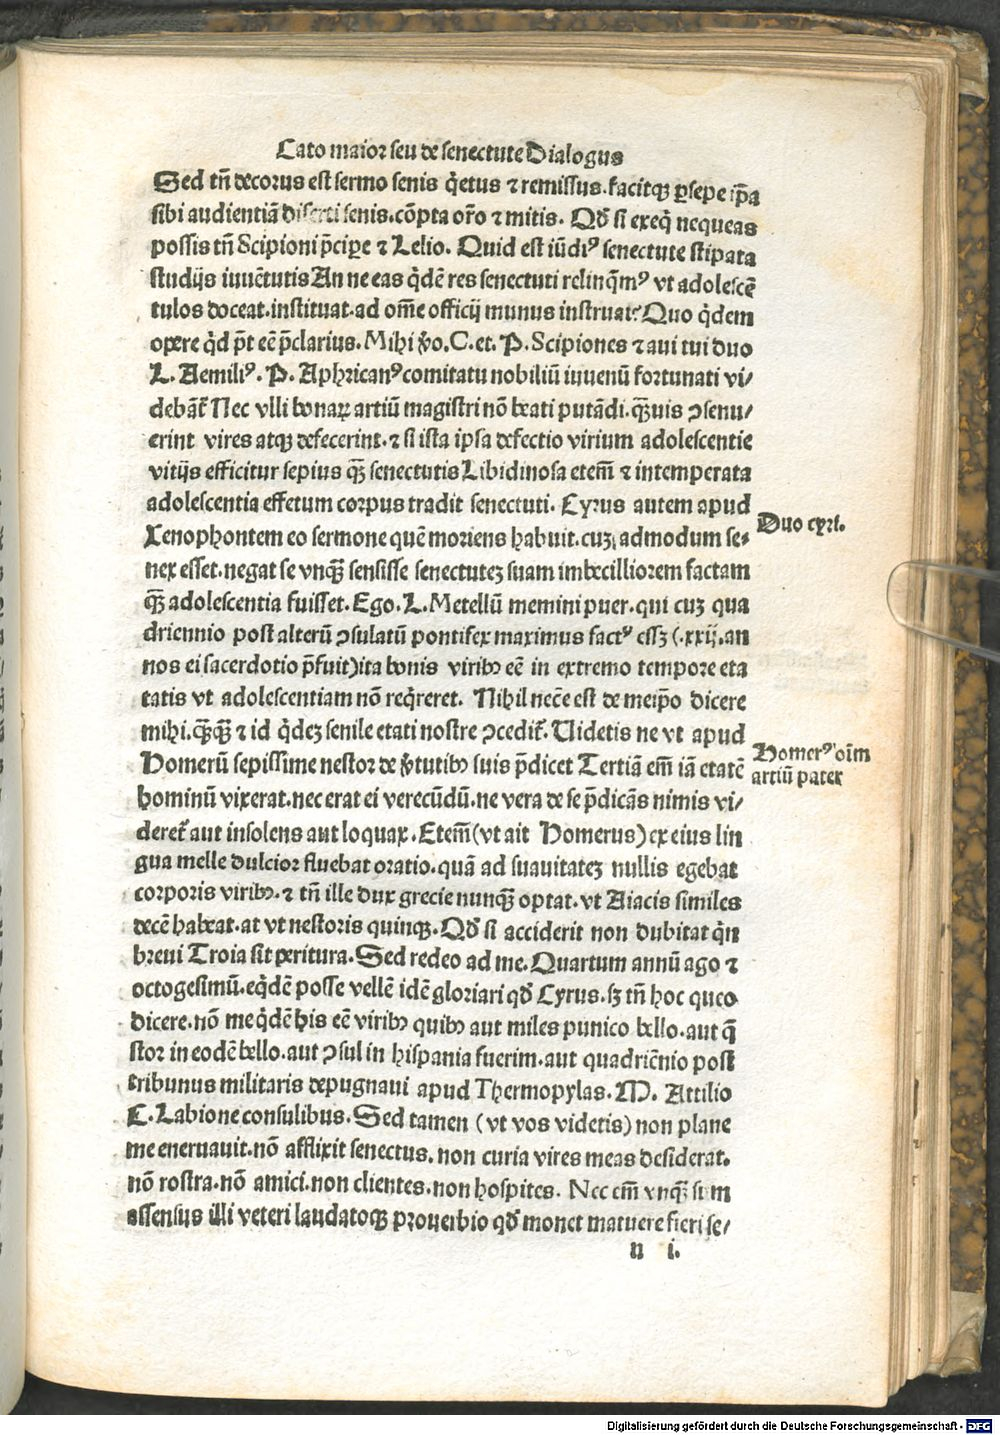 Cato maior seu de senectute Dialogus
Sed tñ decorus est sermo senis q̃etus ⁊ remissus. facitqꝫ ꝑsepe ip̃a
sibi audientiã diserti senis. cõpta or̃o ⁊ mitis. Qđ si exeq̃ nequeas
possis tñ Scipioni p̃cipe ⁊ Lelio. Quid est iũdiꝰ senectute stipata
studijs iuuẽtutis An ne eas q̃dẽ res senectuti relinq̃mꝰ vt adolescẽ
tulos doceat. instituat. ad om̃e officij munus instruat? Quo q̃dem
opere q̃d p̃t eẽ p̃clarius. Mihi ṽo. C. et. P. Scipiones ⁊ aui tui duo
L. Aemiliꝰ. P. Aphricanꝰ comitatu nobiliũ iuuenũ fortunati vi/
debãt̃ Nec vlli bonaꝝ artiũ magistri nõ beati putãdi. qꝫ̃uis ꝯsenu/
erint vires atqꝫ defecerint. ⁊ si ista ipsa defectio virium adolescentie
vitijs efficitur sepius qꝫ̃ senectutis Libidinosa etem̃ ⁊ intemperata
adolescentia effetum corpus tradit senectuti. Cyrus autem apud
Xenophontem eo sermone quẽ moriens habuit. cuꝫ admodum se-
nex esset. negat se vnqꝫ̃ sensisse senectuteꝫ suam imbecilliorem factam
qꝫ̃ adolescentia fuisset. Ego. L. Metellũ memini puer. qui cuꝫ qua
driennio post alterũ ꝯsulatũ pontifex maximus factꝰ essꝫ (. xxij. an
nos ei sacerdotio p̃fuit) ita bonis viribꝫ eẽ in extremo tempore eta
tatis vt adolescentiam nõ req̃reret. Nihil necẽ est de meip̃o dicere
mihi. qꝫ̃qꝫ̃ ⁊ id q̃deꝫ senile etati nostre ꝯcedit̃. Uidetis ne vt apud
Homerũ sepissime nestor de ṽtutibꝫ suis p̃dicet Tertiã em̃ iã etatẽ
hominũ vixerat. nec erat ei verecũdũ. ne vera de se p̃dicãs nimis vi/
deret̃ aut insolens aut loquax. Etem̃ (vt ait Homerus) ex eius lin
gua melle dulcior fluebat oratio. quã ad suauitateꝫ nullis egebat
corporis viribꝫ. ⁊ tñ ille dux grecie nunqꝫ̃ optat. vt Aiacis similes
decẽ habeat. at vt nestoris quinqꝫ. Qđ si acciderit non dubitat q̃n
breui Troia sit peritura. Sed redeo ad me. Quartum annũ ago ⁊
octogesimũ. eq̃dẽ posse vellẽ idẽ gloriari qđ Cyrus. sꝫ tñ hoc queo
dicere. nõ me q̃dẽ his eẽ viribꝫ quibꝫ aut miles punico bello. aut q̃
stor in eodẽ bello. aut ꝯsul in hispania fuerim. aut quadriẽnio post
tribunus militaris depugnaui apud Thermopylas. M. Attilio
C. Labione consulibus. Sed tamen (vt vos videtis) non plane
me eneruauit. nõ afflixit senectus. non curia vires meas desiderat.
nõ rostra. nõ amici. non clientes. non hospites. Nec em̃ vnqꝫ̃ sum
assensus illi veteri laudatoqꝫ prouerbio qđ monet mature fieri se/
n i.
Duo cyri.
Homerꝰ oĩm
artiũ pater
Digitalisierung gefördert durch die Deutsche Forschungsgemeinschaft - DFG